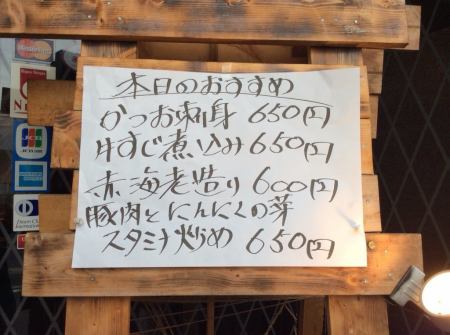 本日のおすすめ
かつお刺身 650円
牛すじ煮込み 650円
赤海老造り 600円
豚肉とにんにくの芽
スタミナ炒め 650円
MasterCard
JCB